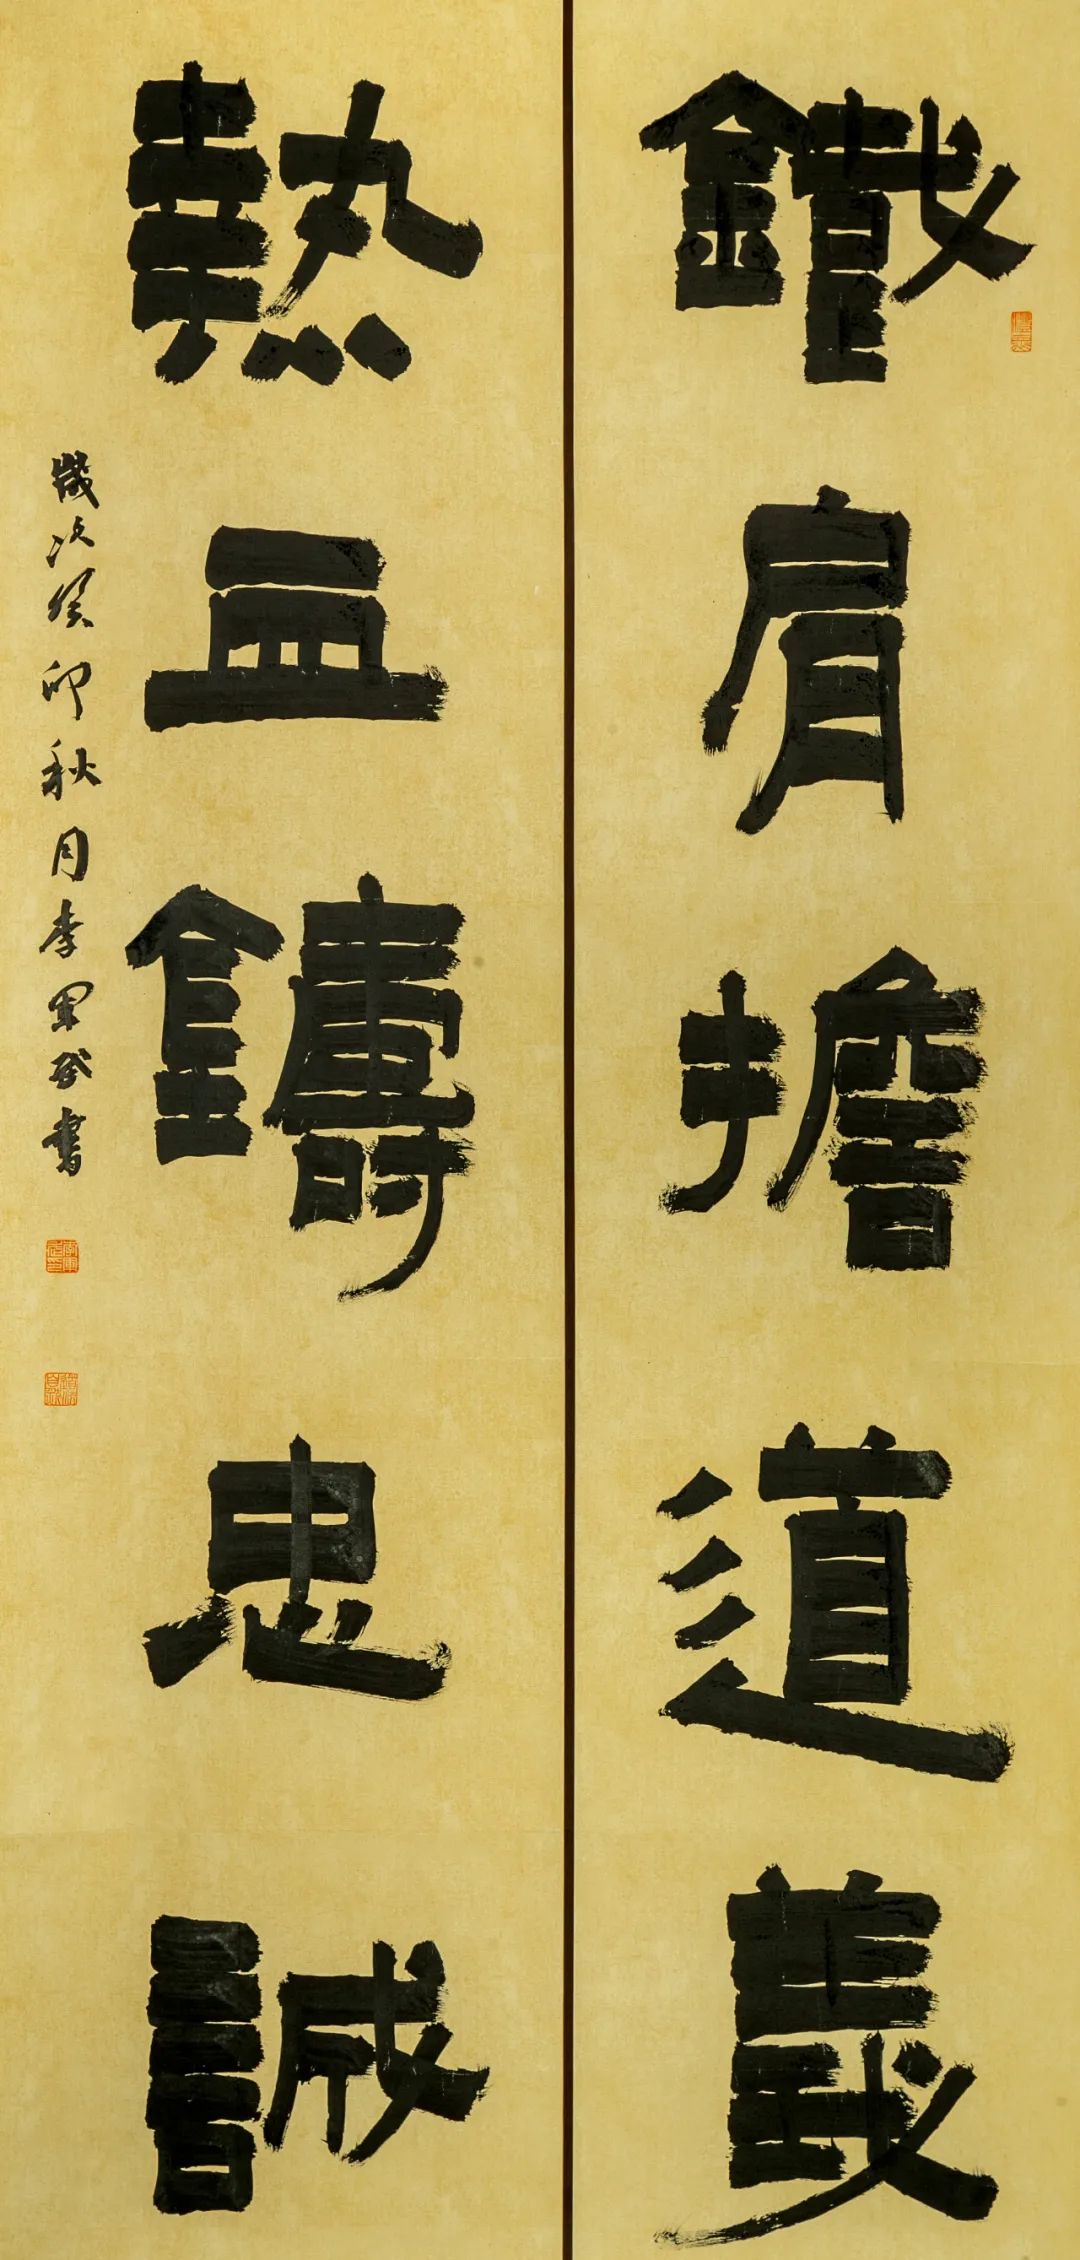 鐵肩擔道義
熱血鑄忠誠
歲次癸卯秋月李軍書